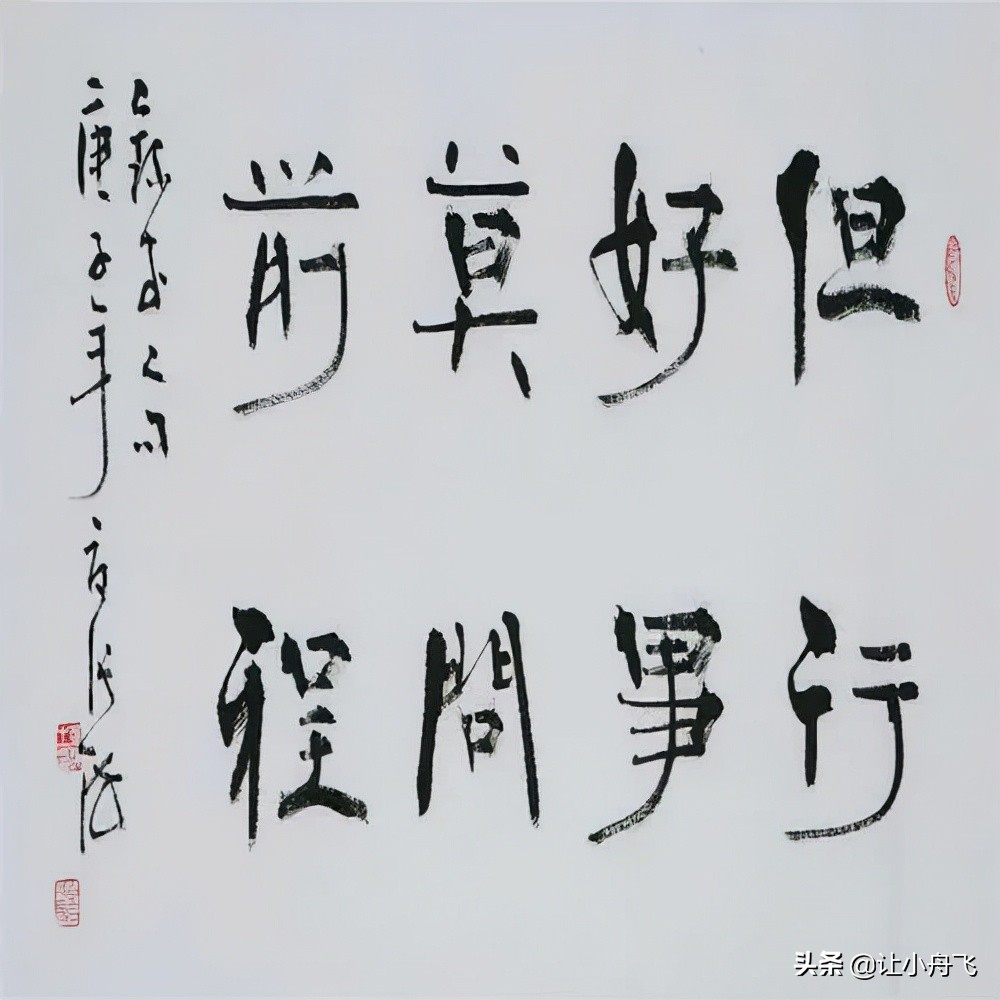 但行
好事
莫問
前程
庚子年
头条 @让小舟飞